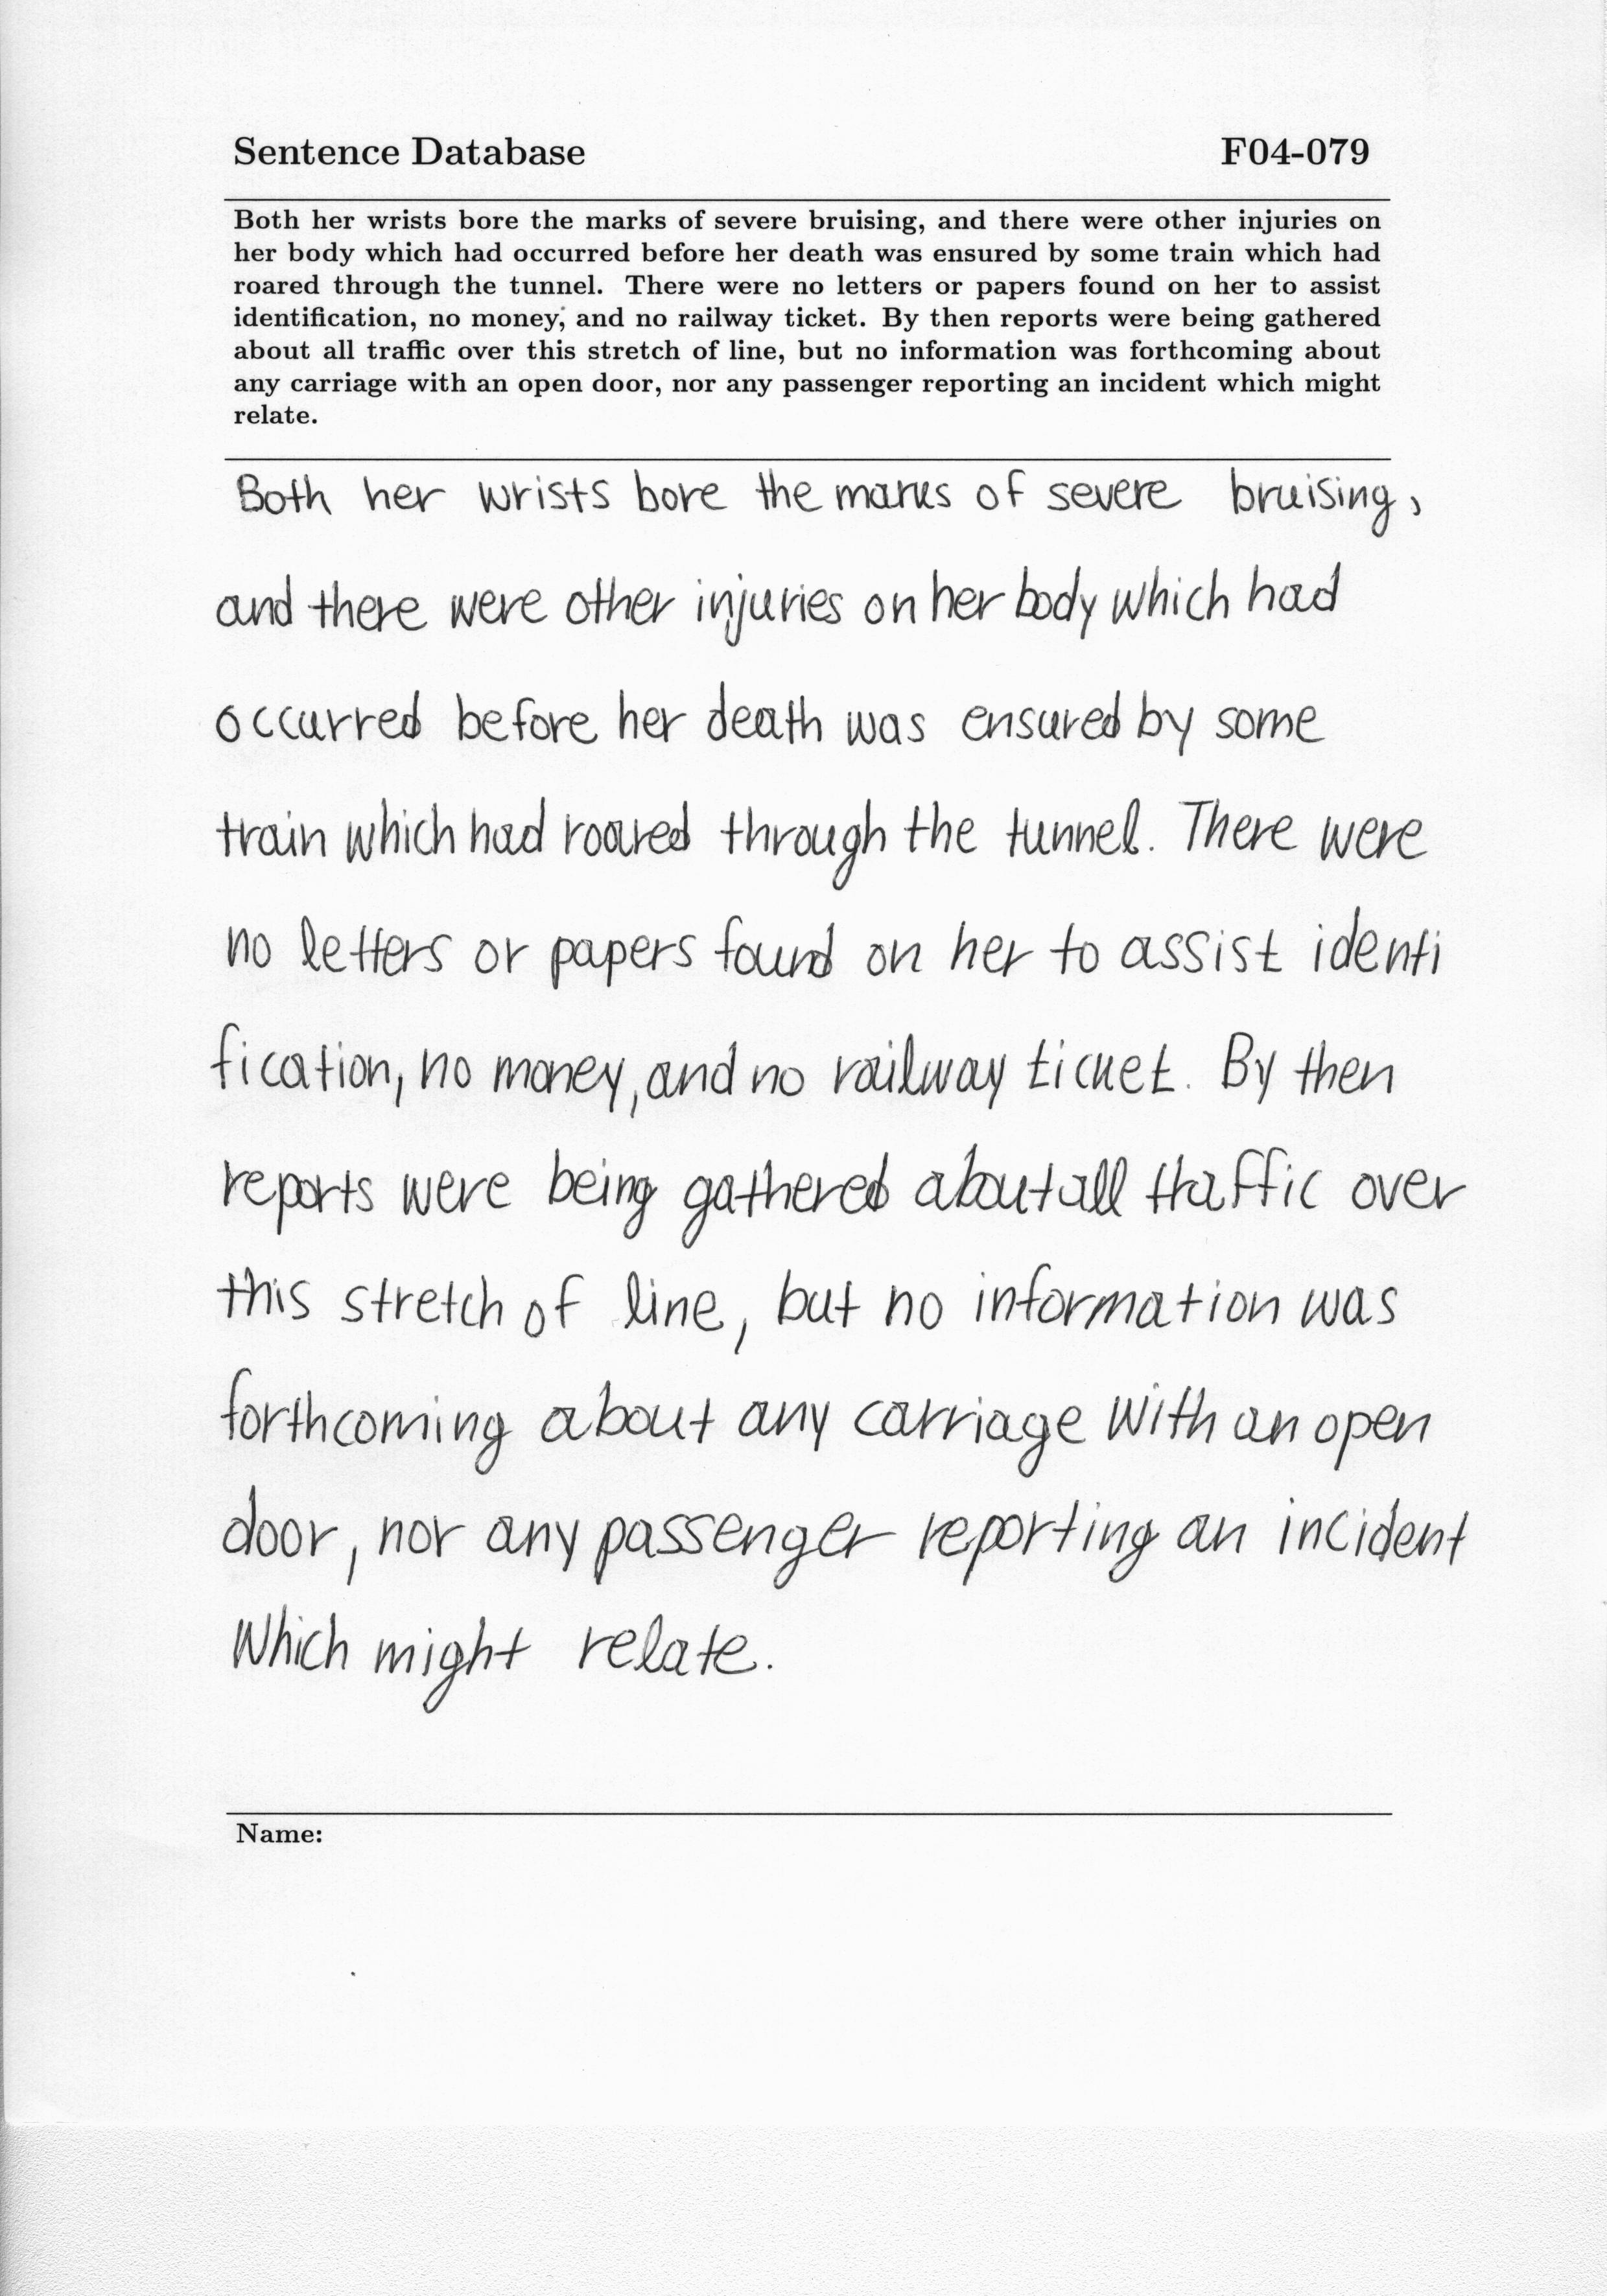 Sentence Database F04-079
Both her wrists bore the marks of severe bruising, and there were other injuries on
her body which had occurred before her death was ensured by some train which had
roared through the tunnel. There were no letters or papers found on her to assist
identification, no money, and no railway ticket. By then reports were being gathered
about all traffic over this stretch of line, but no information was forthcoming about
any carriage with an open door, nor any passenger reporting an incident which might
relate.
Both her wrists bore the marks of severe bruising,
and there were other injuries on her body which had
occurred before her death was ensured by some
train which had roared through the tunnel. There were
no letters or papers found on her to assist identi
fication, no money, and no railway ticket. By then
reports were being gathered about all traffic over
this stretch of line, but no information was
forthcoming about any carriage with an open
door, nor any passenger reporting an incident
Which might relate.
Name: